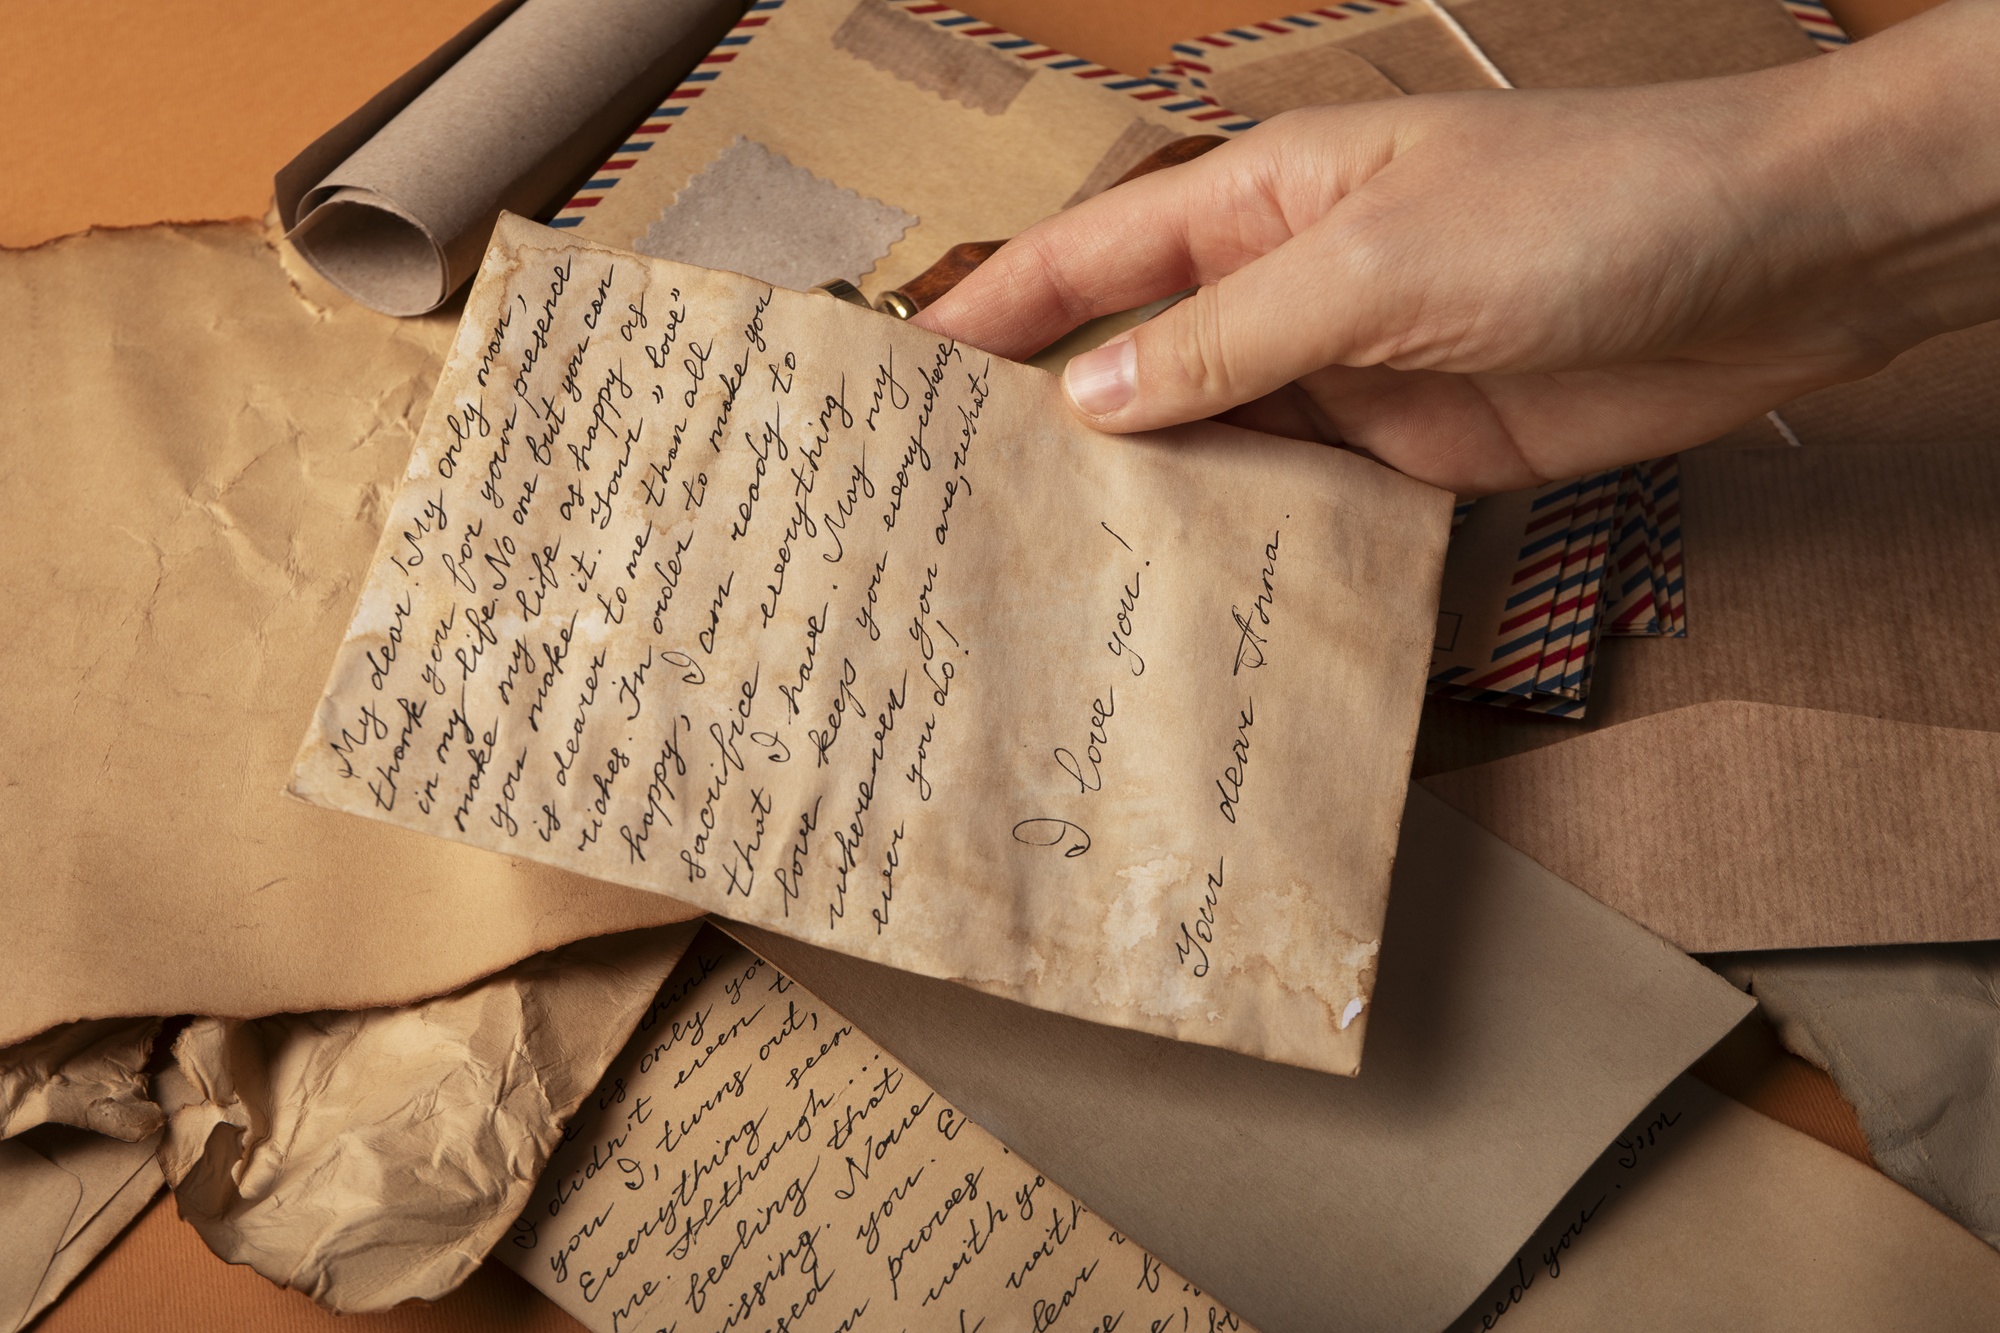 My dear! My only man,
thank you for your presence
in my life. No one but you can
make my life as happy as
you make it. Your "love"
is dearer to me than all
riches. In order to make you
happy, I am ready to
sacrifice everything
that I have. May my
love keep you everywhere,
wherever you are, what-
ever you do!
I love you!
Your dear Anna.
think
is only you
I didn't even
you I, turns out,
Everything seen
me. Although...
a feeling that
missing. None
you. E
proves
with yo
with
dear
need you. I'm